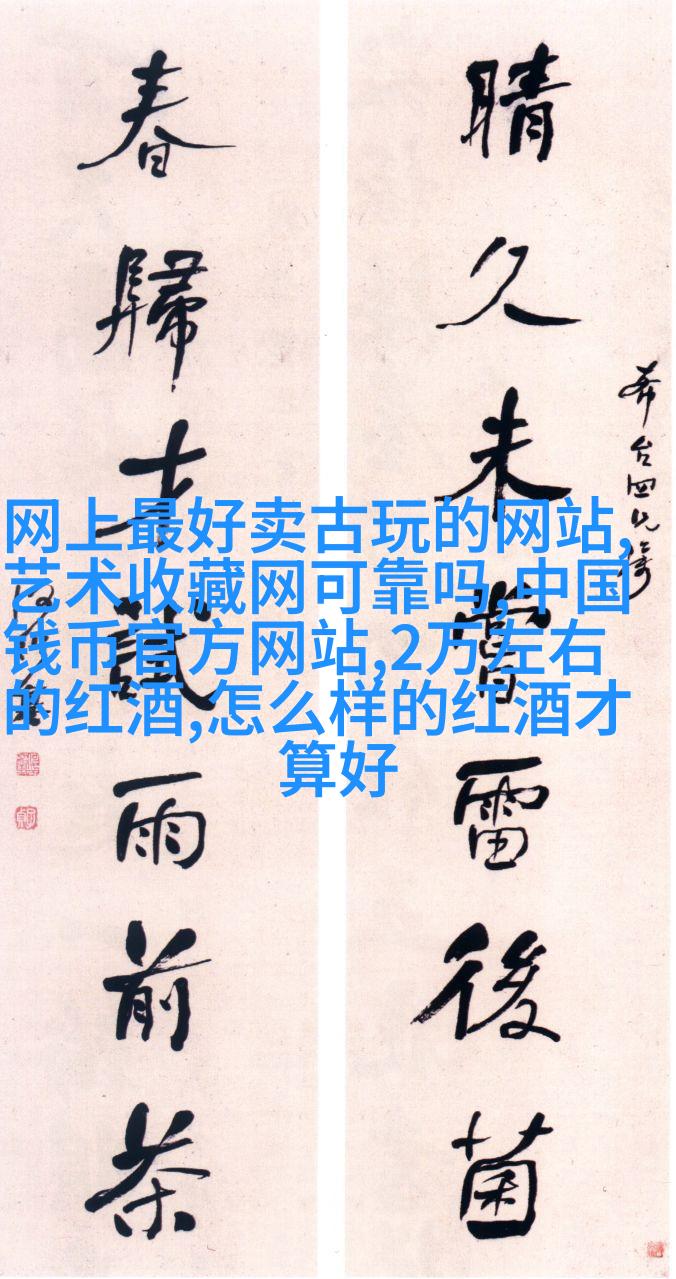 晴久未嘗雷後菌
春歸試雨前茶
网上最好卖古玩的网站,
艺术收藏网可靠吗,中国
钱币官方网站,2万左右
的红酒,怎么样的红酒才
算好